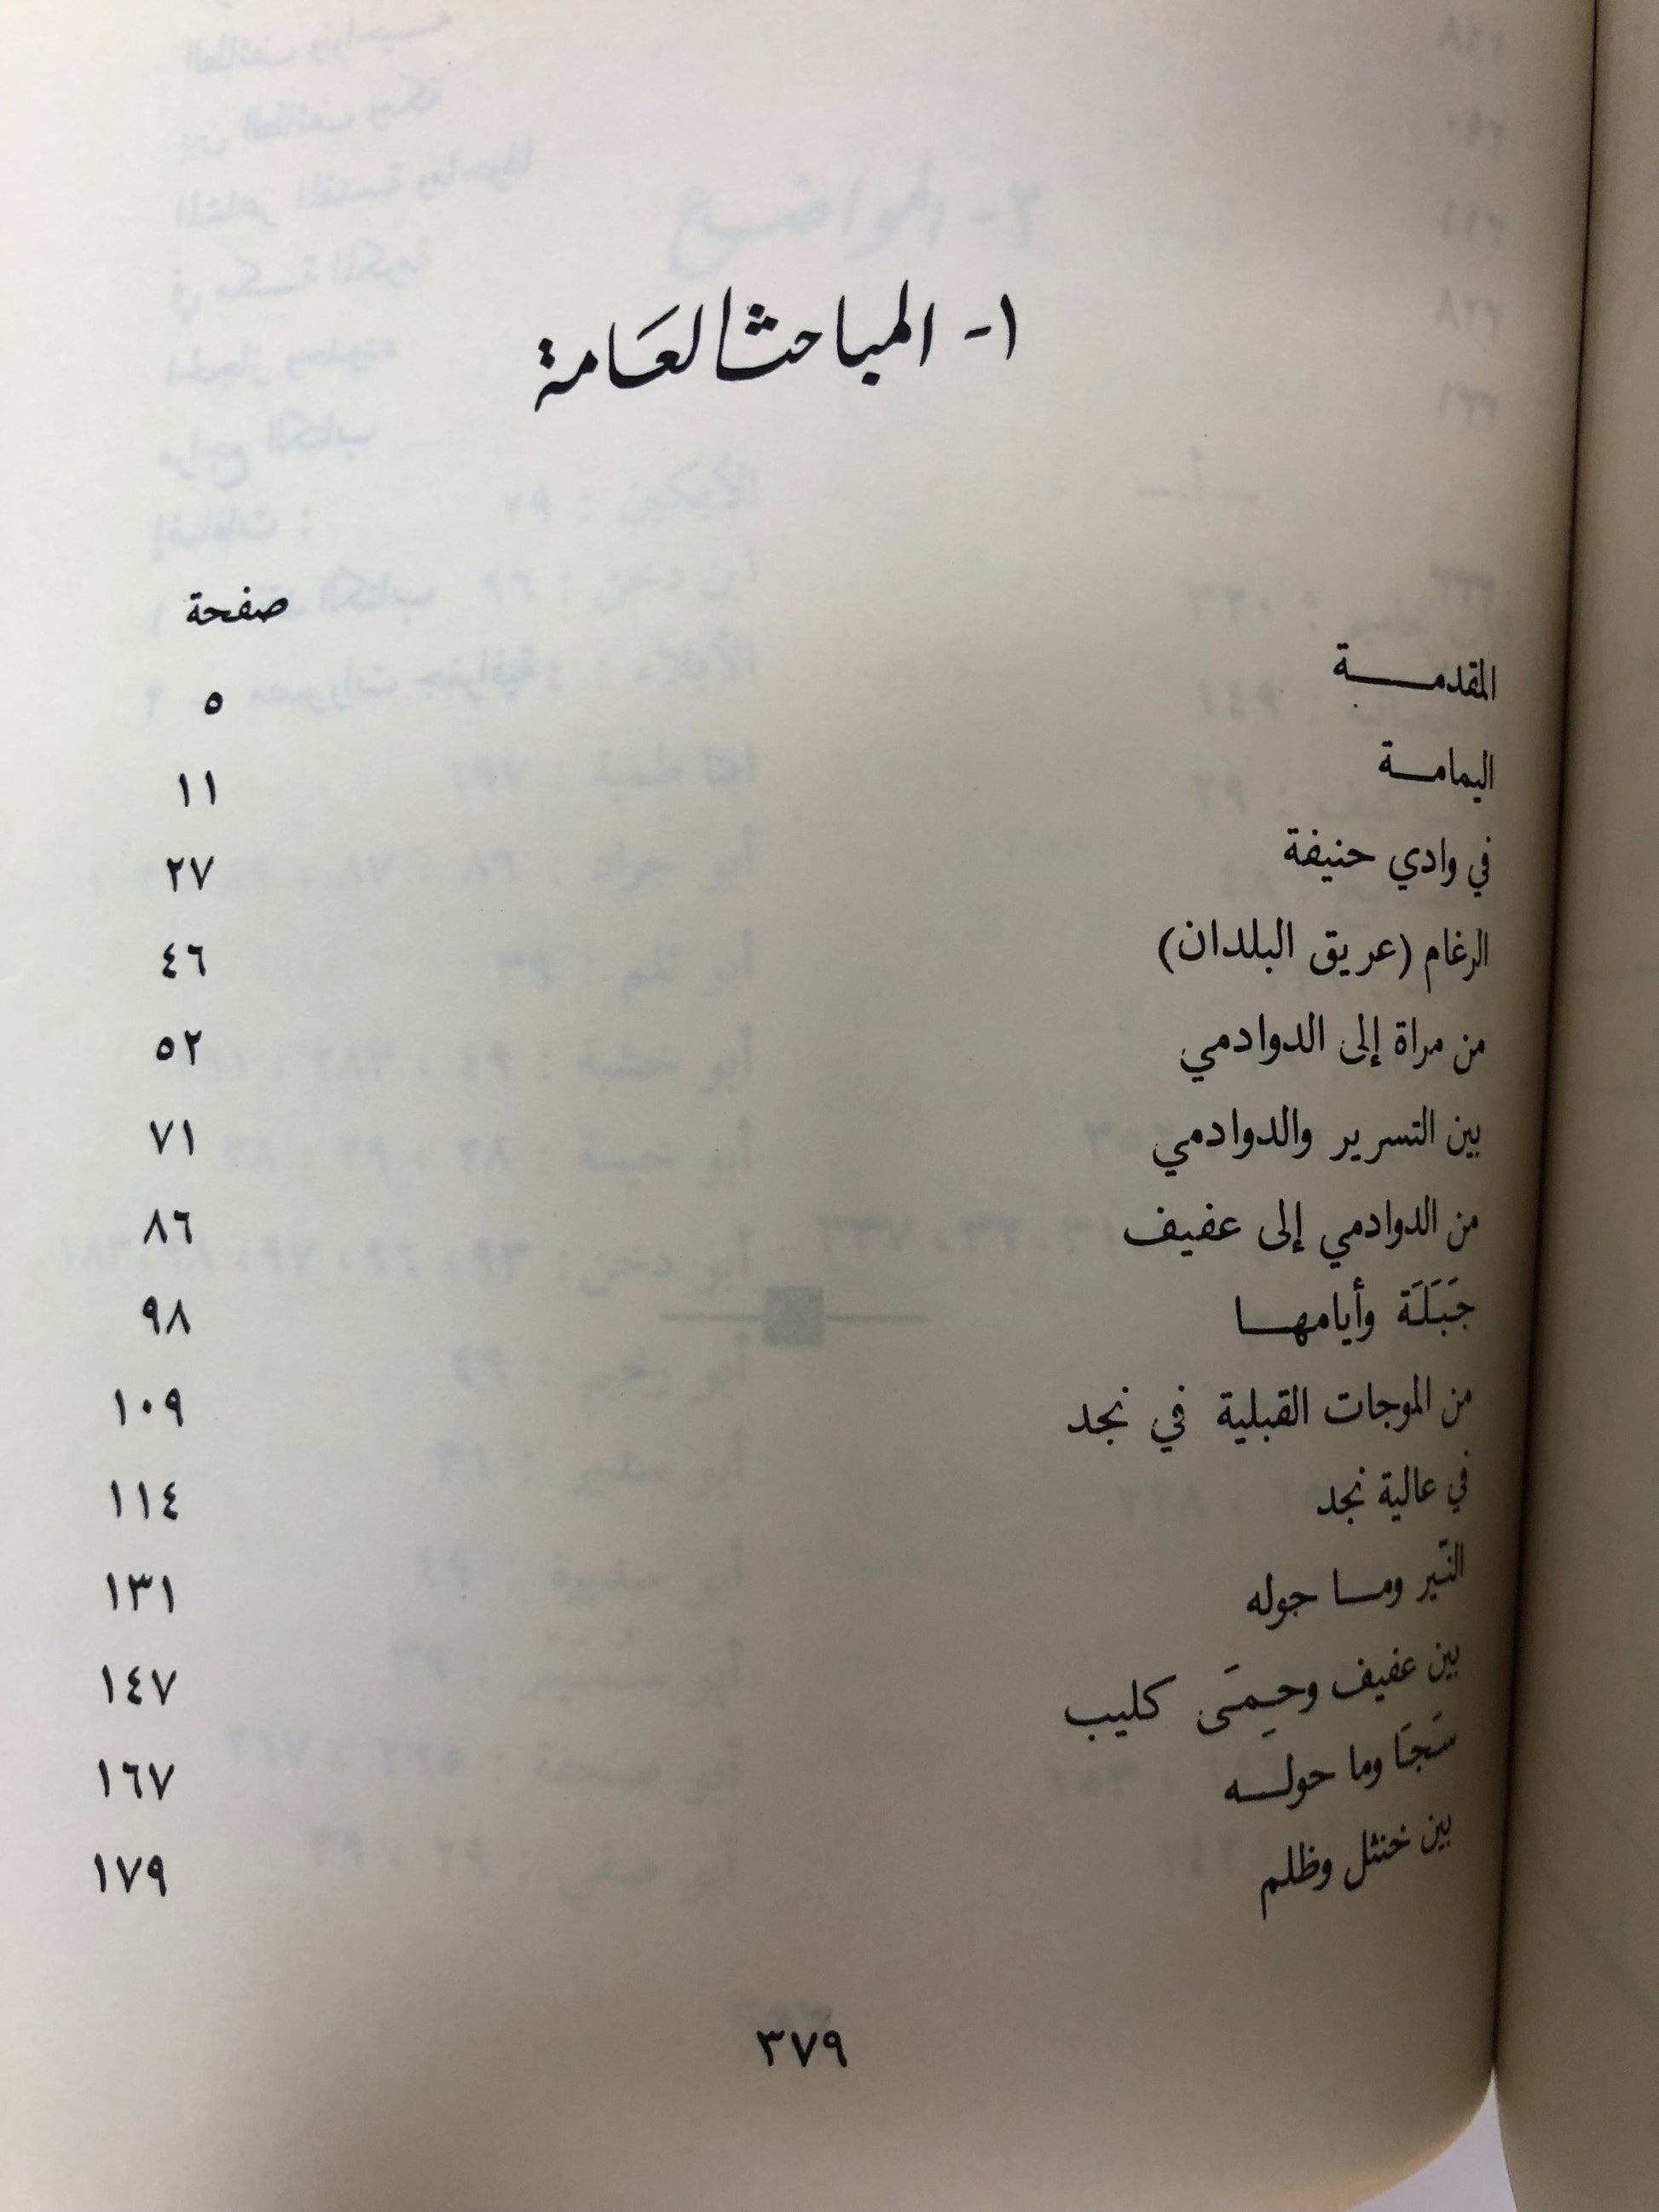 ١- المباحث العامة
صفحة
المقدمة ٥
اليمامة ١١
في وادي حنيفة ٢٧
الرغام (عريق البلدان) ٤٦
من مراة إلى الدوادمي ٥٢
بين التسرير والدوادمي ٧١
من الدوادمي إلى عفيف ٨٦
جَبَلَة وأيامها ٩٨
من الموجات القبلية في نجد ١٠٩
في عالية نجد ١١٤
النّير وما جوله ١٣١
بين عفيف وحِمَى كليب ١٤٧
سَجَا وما حوله ١٦٧
بين خنثل وظلم ١٧٩
٣٧٩